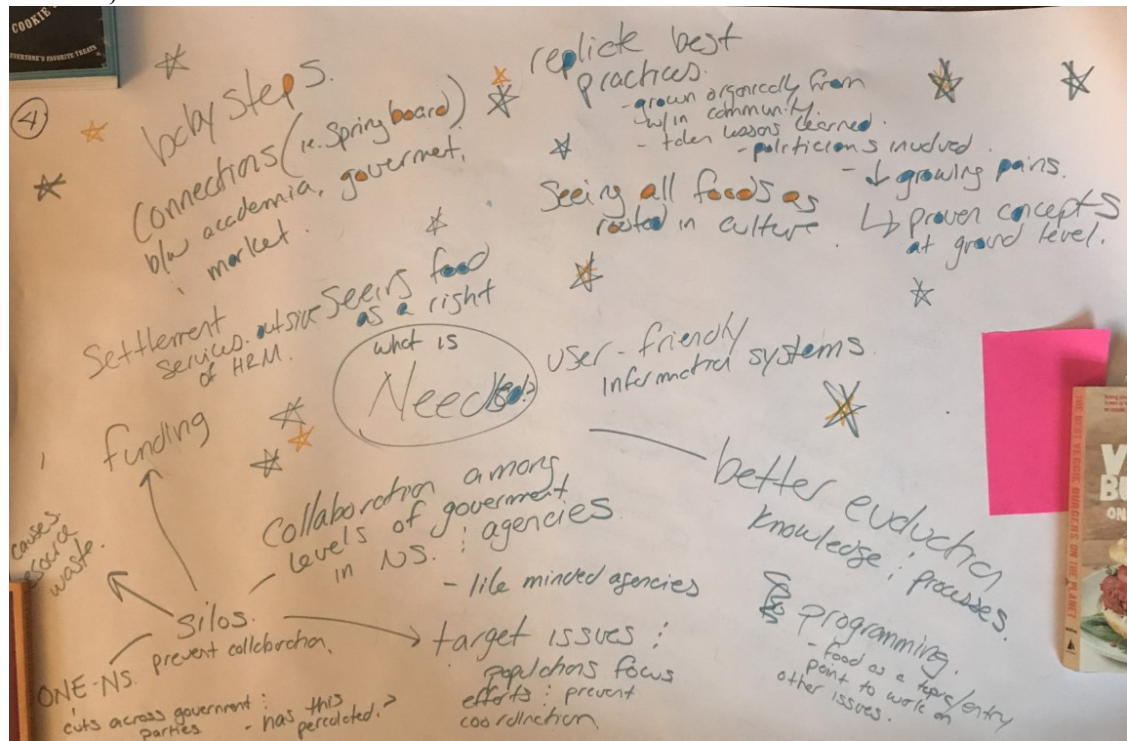 COOKIE
EVERYONE'S FAVORITE TREATS
4
baby steps.
Connections (i.e. Springboard)
b/w academia, govermet,
; market.
replicte best
practices.
- grown organically from
w/in community.
- taken lessons learned.
- politicians involved.
- ↓ growing pains.
↳ proven concepts
at ground level.
Seeing all foods as
rooted in culture
Seeing food
as a right
Settlement
services outside
of HRM.
what is
Needed?
user-friendly
information systems.
funding
Collaboration among
levels of government
in NS. ; agencies
- like minded agencies
better evaluation
knowledge ; processes.
programming.
- food as a topic/entry
point to work on
other issues.
causes
resource
waste.
silos.
prevent collaboration.
target issues ;
populations focus
efforts ; prevent
coordination.
ONE-NS.
cuts across government ;
parties
- has this
percolated?
THE BEST VEGGIE BURGERS ON THE PLANET
V
BU
ON